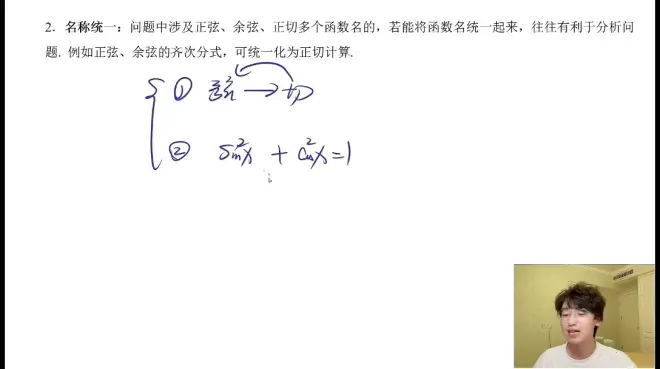 2．名称统一：问题中涉及正弦、余弦、正切多个函数名的，若能将函数名统一起来，往往有利于分析问
题. 例如正弦、余弦的齐次分式，可统一化为正切计算.
① 弦 → 切
② sin²x + cos²x = 1